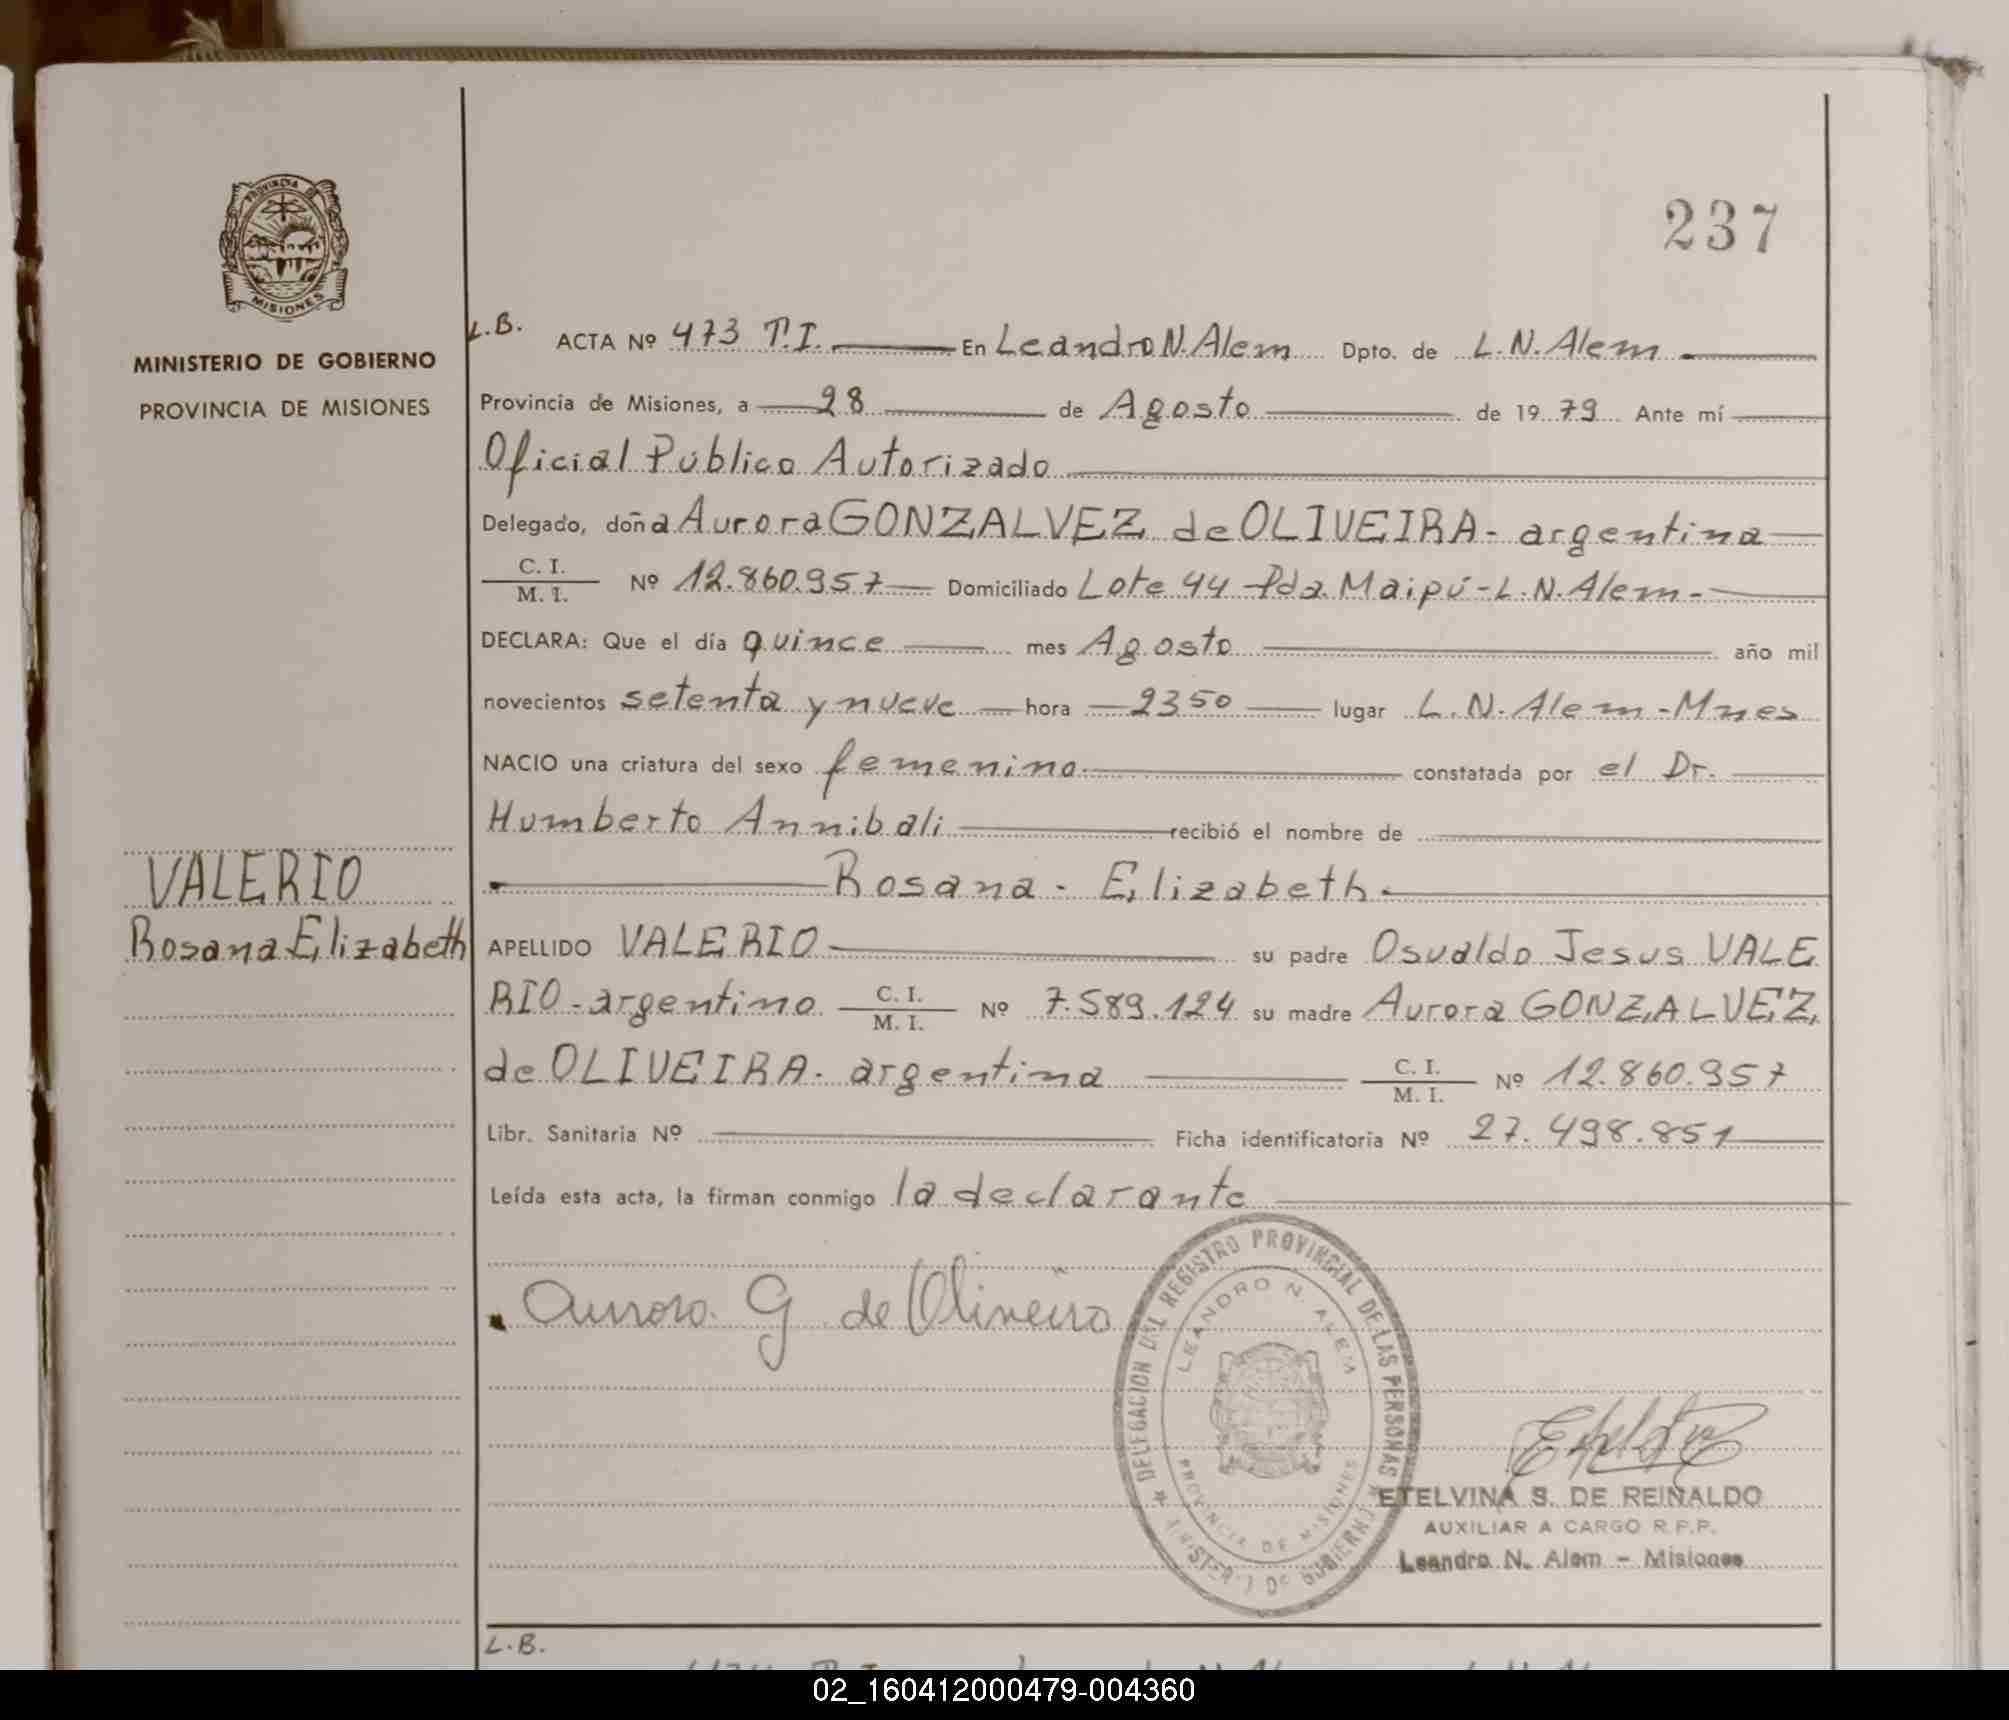 PROVINCIA DE
MISIONES
MINISTERIO DE GOBIERNO
PROVINCIA DE MISIONES
VALERIO
Rosana Elizabeth
237
L.B. ACTA Nº 473 T.I. En Leandro N. Alem Dpto. de L.N. Alem
Provincia de Misiones, a 28 de Agosto de 1979 Ante mí
Oficial Público Autorizado
Delegado, doña Aurora GONZALVEZ de OLIVEIRA - argentina
C. I. / M. I. Nº 12.860.957 Domiciliado Lote 44 - Pda. Maipú - L.N. Alem -
DECLARA: Que el día quince mes Agosto año mil
novecientos setenta y nueve hora 2350 lugar L.N. Alem - Mnes
NACIO una criatura del sexo femenino constatada por el Dr.
Humberto Annibali recibió el nombre de
Rosana - Elizabeth
APELLIDO VALERIO su padre Osvaldo Jesus VALE
RIO - argentino C. I. / M. I. Nº 7.589.124 su madre Aurora GONZALVEZ
de OLIVEIRA - argentina C. I. / M. I. Nº 12.860.957
Libr. Sanitaria Nº Ficha identificatoria Nº 27.498.851
Leída esta acta, la firman conmigo la declarante
Aurora G de Oliveira
DELEGACION DEL REGISTRO PROVINCIAL DE LAS PERSONAS
MINISTERIO DE GOBIERNO
LEANDRO N. ALEM
PROVINCIA DE MISIONES
ETELVINA S. DE REINALDO
AUXILIAR A CARGO R.P.P.
Leandro N. Alem - Misiones
L.B.
02_160412000479-004360